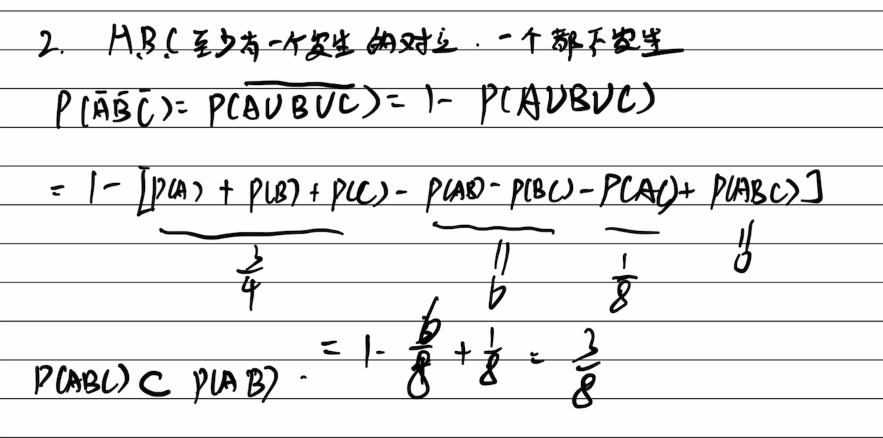 2. A,B,C 至少有一个发生的对立. 一个都不发生
P(A̅B̅C̅)= P(\overline{A∪B∪C})= 1- P(A∪B∪C)
= 1- [P(A) + P(B) + P(C) - P(AB) - P(BC) - P(AC) + P(ABC)]
3/4 = 0 1/8 = 0
= 1- 6/8 + 1/8 = 3/8
P(ABC) ⊂ P(AB).